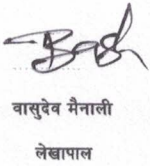 वासुदेव मैनाली
लेखापाल